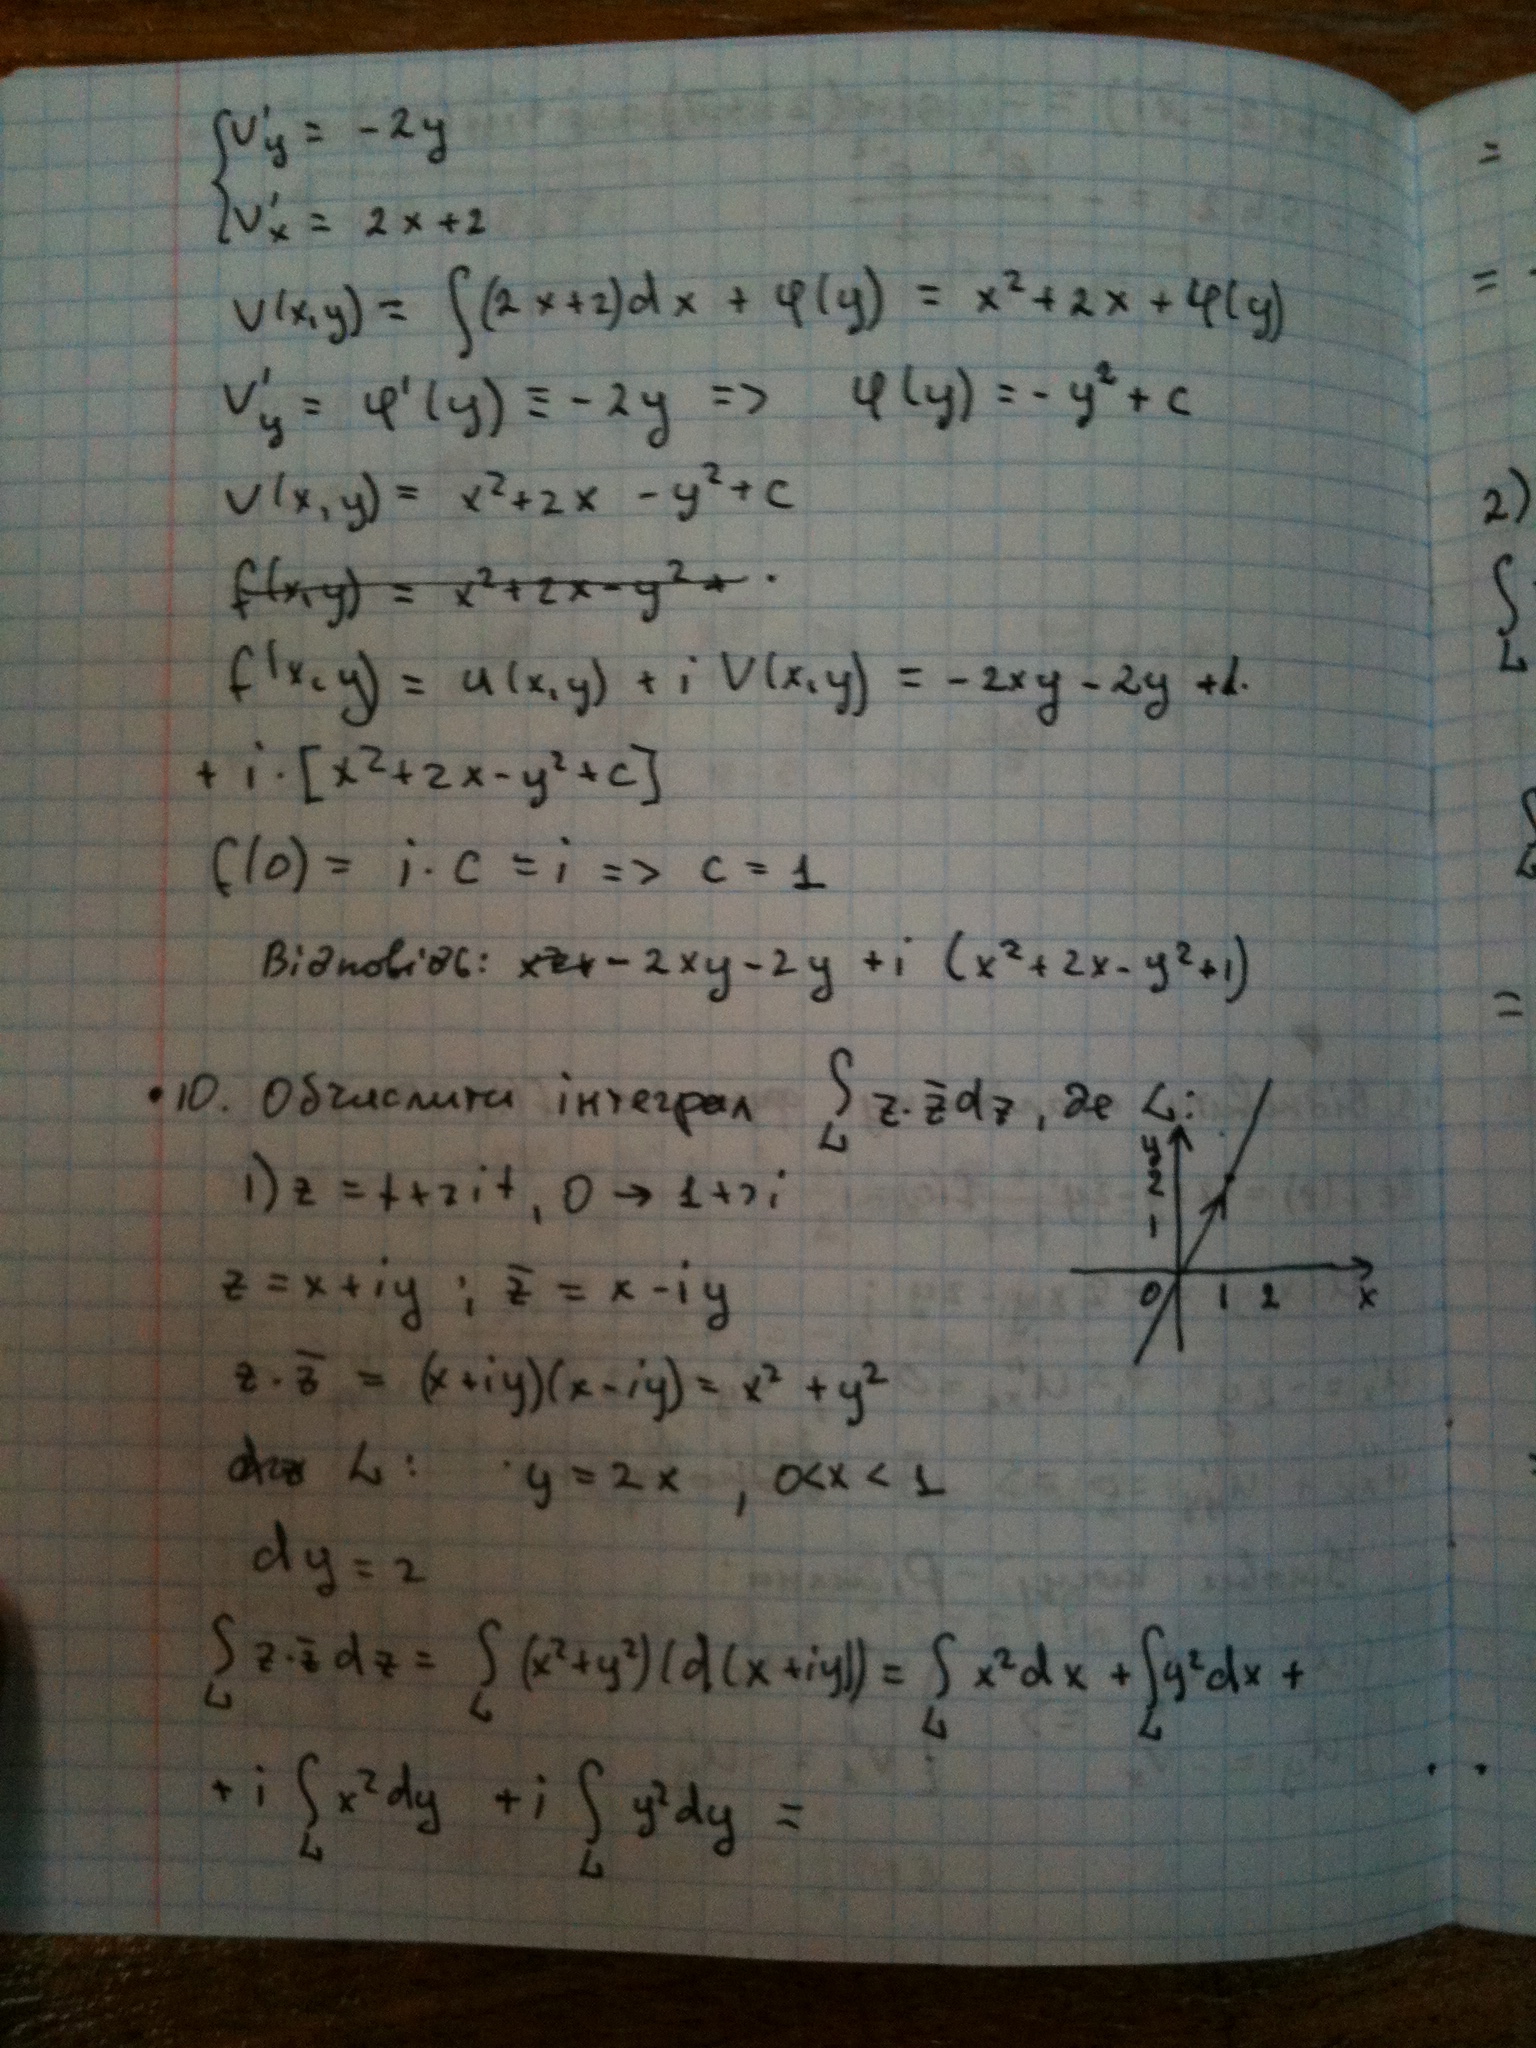 { V'y = -2y
V'x = 2x+2
V(x,y) = ∫(2x+2)dx + φ(y) = x²+2x+φ(y)
V'y = φ'(y) ≡ -2y => φ(y) = -y²+c
V(x,y) = x²+2x -y²+c
f(x,y) = x²+2x-y²+
f(x,y) = u(x,y) + i V(x,y) = -2xy-2y +
+ i·[x²+2x-y²+c]
f(0) = i·c = i => c = 1
Відповідь: -2xy-2y +i (x²+2x-y²+1)
•10. Обчислити інтеграл ∫L z·z̄dz, де L:
1) z = t+2it, 0 → 1+2i
y
2
1
0 1 2 x
z = x+iy ; z̄ = x-iy
z·z̄ = (x+iy)(x-iy) = x² +y²
L: y = 2x , 0<x<1
dy = 2
∫L z·z̄ dz = ∫L (x²+y²)(d(x+iy)) = ∫L x²dx + ∫L y²dx +
+ i ∫L x²dy + i ∫L y²dy =
=
=
2)
∫L
=